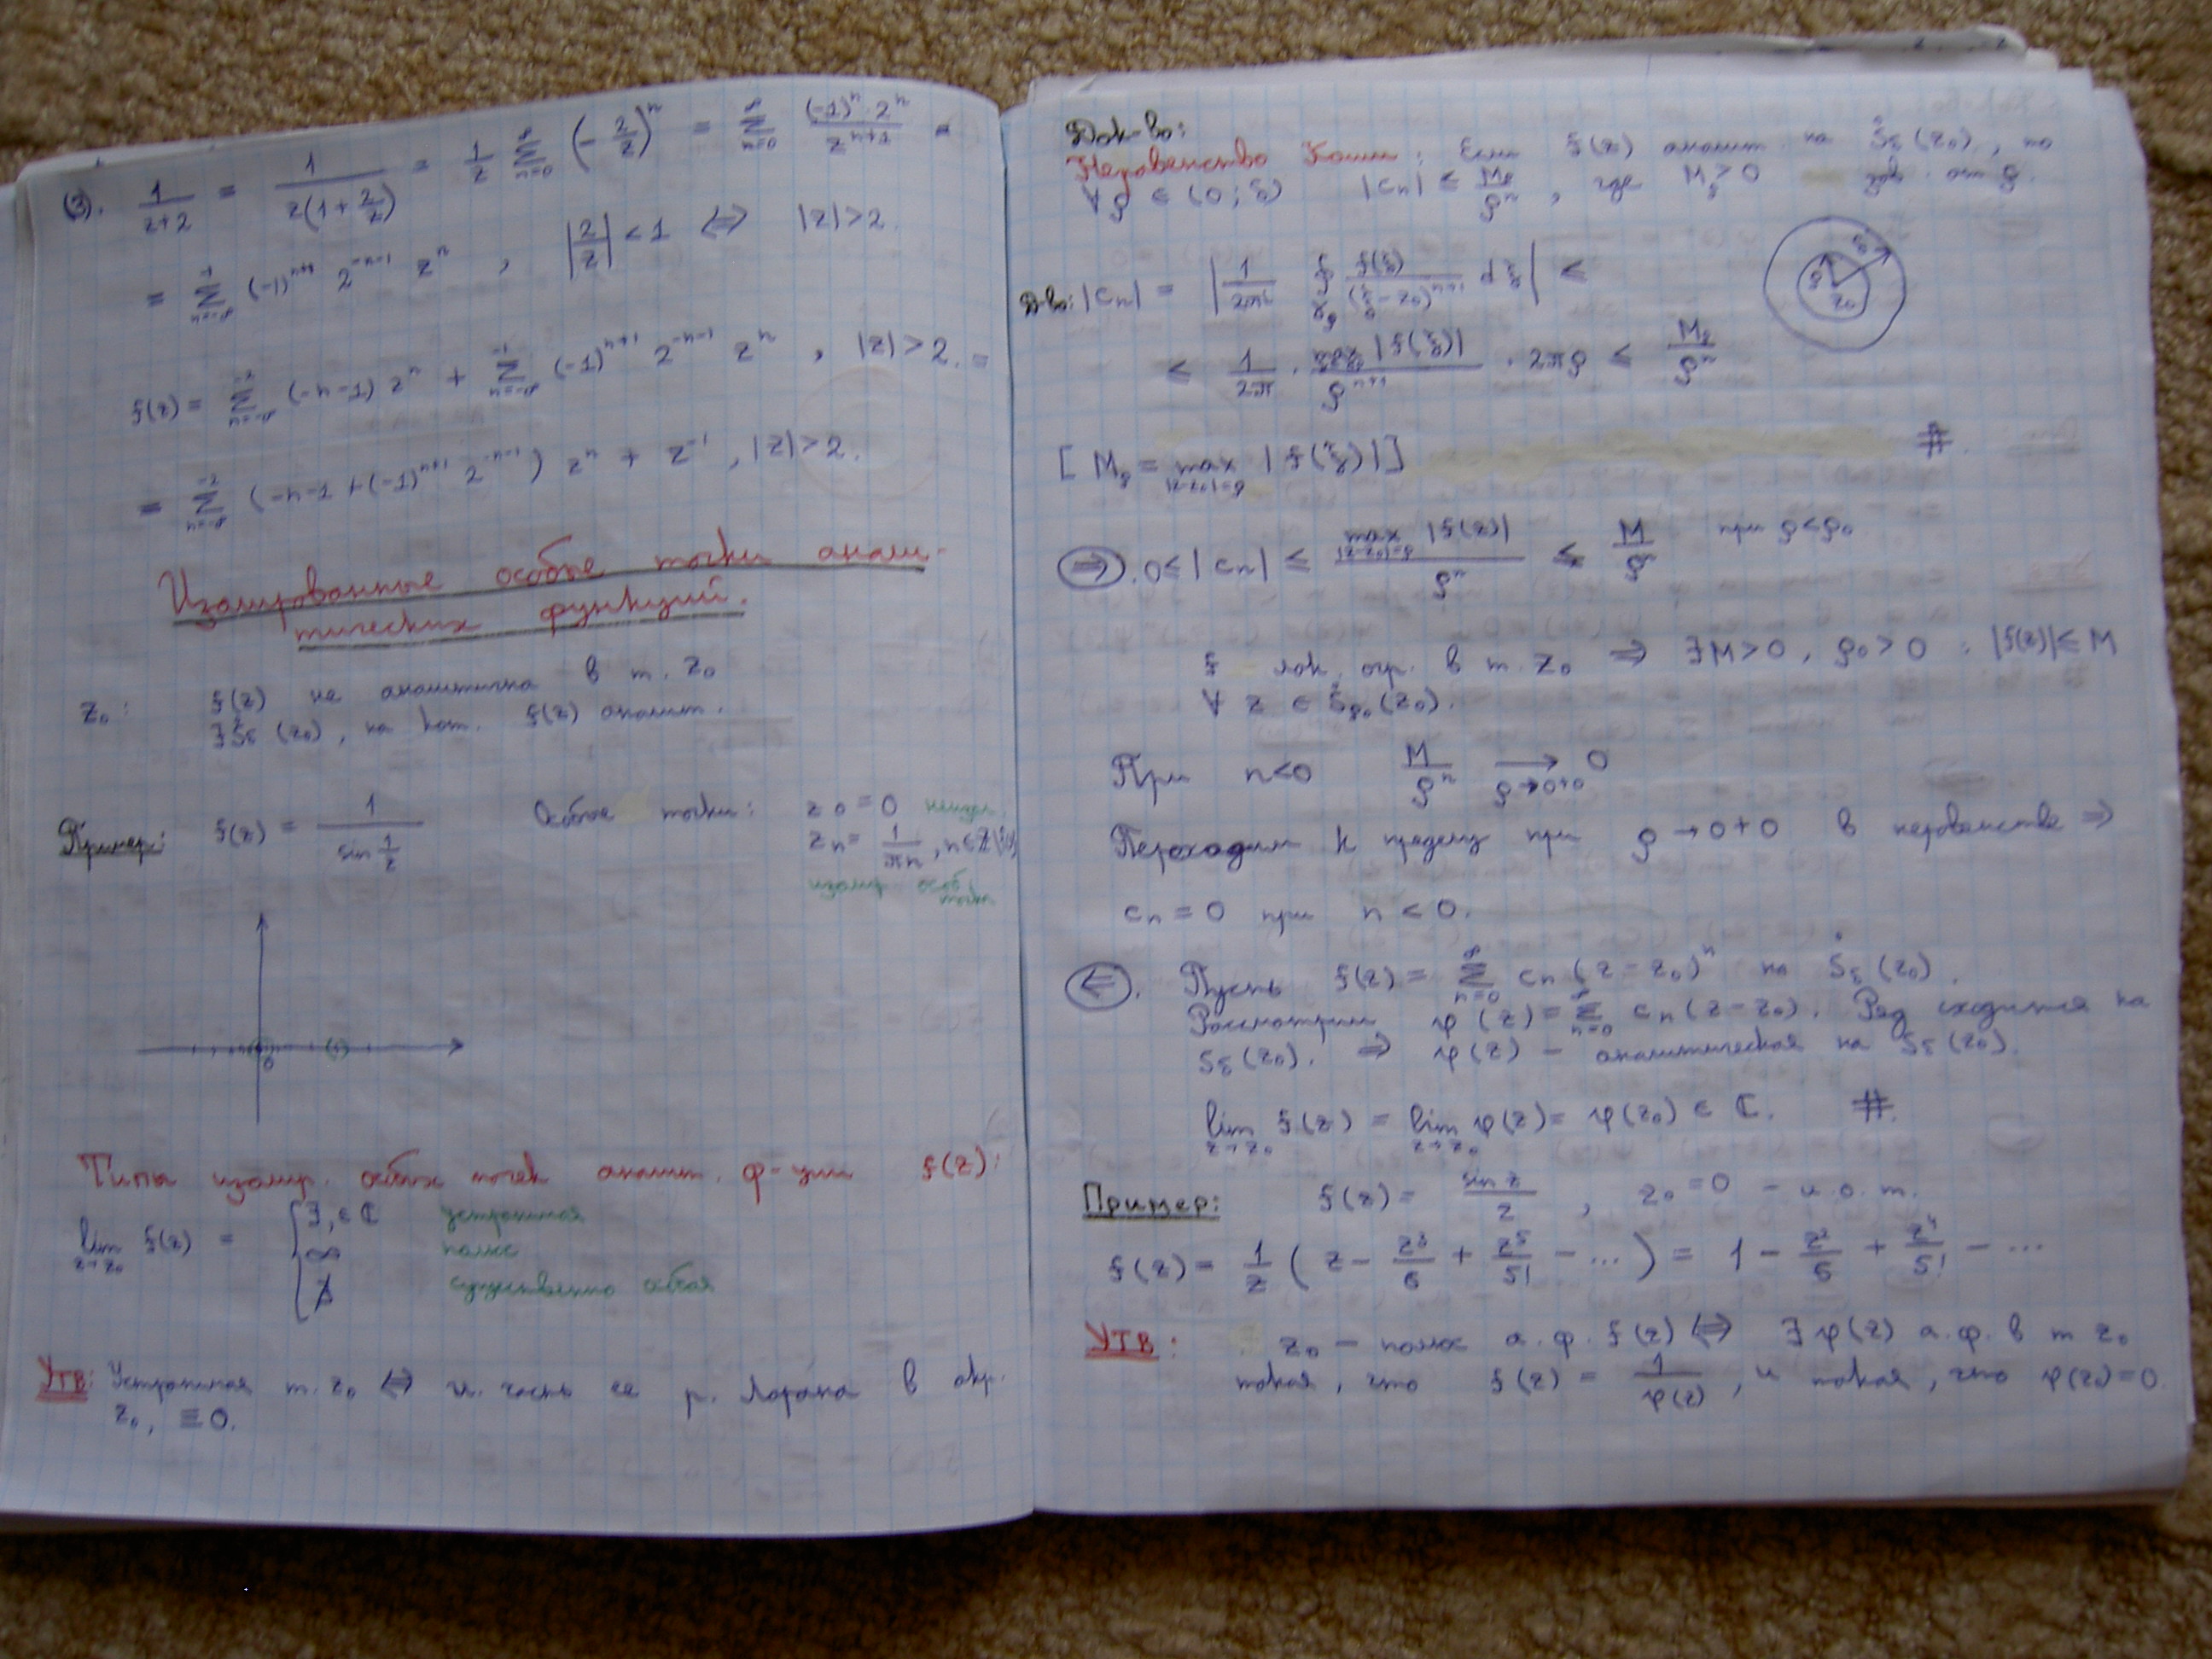 (3). 1/(z+2) = 1/(z(1+2/z)) = 1/z ∑_{n=0}^{∞} (-2/z)^n = ∑_{n=0}^{∞} (-1)^n·2^n/z^{n+1} =
= ∑_{n=-∞}^{-1} (-1)^{n+1} 2^{-n-1} z^n , |2/z| < 1 ⇔ |z|>2.
f(z) = ∑_{n=-∞}^{-2} (-n-1) z^n + ∑_{n=-∞}^{-1} (-1)^{n+1} 2^{-n-1} z^n , |z|>2. =
= ∑_{n=-∞}^{-2} (-n-1+(-1)^{n+1} 2^{-n-1}) z^n + z^{-1} , |z|>2.
Изолированные особые точки анали-
тических функций.
z₀: f(z) не аналитична в т. z₀
∃Ṡ_δ(z₀), на кот. f(z) аналит.
Пример: f(z) = 1/sin(1/z) Особые точки: z₀=0 неизол.
z_n = 1/(πn), n∈ℤ\{0}
изолир. особ. точки
0
Типы изолир. особых точек аналит. ф-ции f(z):
lim_{z→z₀} f(z) = { ∃, ∈ ℂ устранимая
∞ полюс
∄ существенно особая
Утв: Устранимая т. z₀ ⇔ гл. часть ее р. Лорана в окр.
z₀, ≡0.
Док-во:
Неравенство Коши: Если f(z) аналит. на Ṡ_δ(z₀), то
∀ρ ∈ (0;δ) |c_n| ≤ M_ρ/ρ^n , где M_ρ>0 зав. от ρ.
Д-во: |c_n| = |1/(2πi) ∮_{γ_ρ} f(ξ)/(ξ-z₀)^{n+1} dξ| ≤
ρ δ z₀
≤ 1/(2π) · max |f(ξ)|/ρ^{n+1} · 2πρ ≤ M_ρ/ρ^n
[ M_ρ = max_{|z-z₀|=ρ} |f(ξ)| ] #.
(⇒). 0≤|c_n| ≤ max_{|z-z₀|=ρ} |f(z)|/ρ^n ≤ M/ρ^n при ρ<ρ₀
f лок. огр. в т. z₀ ⇒ ∃M>0, ρ₀>0 : |f(z)|≤M
∀ z ∈ Ṡ_{ρ₀}(z₀).
При n<0 M/ρ^n →_{ρ→0+0} 0
Переходим к пределу при ρ→0+0 в неравенстве ⇒
c_n = 0 при n < 0.
(⇐). Пусть f(z) = ∑_{n=0}^{∞} c_n(z-z₀)^n на Ṡ_δ(z₀).
Рассмотрим φ(z) = ∑_{n=0}^{∞} c_n(z-z₀). Ряд сходится на
S_δ(z₀). ⇒ φ(z) – аналитическая на S_δ(z₀).
lim_{z→z₀} f(z) = lim_{z→z₀} φ(z) = φ(z₀) ∈ ℂ. #.
Пример: f(z) = sin z/z , z₀=0 – и.о.т.
f(z) = 1/z ( z - z³/6 + z⁵/5! - ... ) = 1 - z²/6 + z⁴/5! - ...
Утв: z₀ – полюс а.ф. f(z) ⇔ ∃ φ(z) а.ф. в т z₀
такая, что f(z) = 1/φ(z), и такая, что φ(z₀)=0.